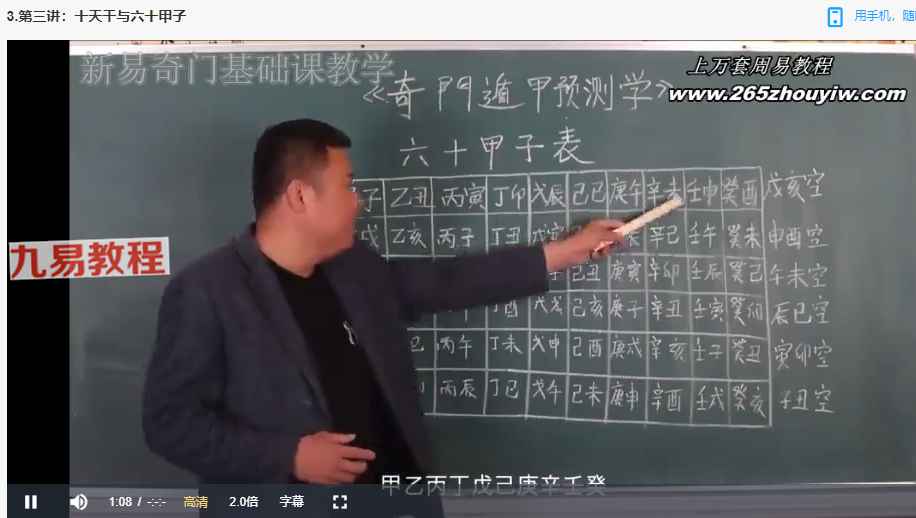 3.第三讲：十天干与六十甲子
用手机，随
新易奇门基础课教学
上万套周易教程
www.265zhouyiw.com
《奇門遁甲预测学》
六十甲子表
子 乙丑 丙寅 丁卯 戊辰 己巳 庚午 辛未 壬申 癸酉 戌亥空
戌 乙亥 丙子 丁丑 戊寅 辰 辛巳 壬午 癸未 申酉空
九易教程
己丑 庚寅 辛卯 壬辰 癸巳 午未空
丁酉 戊戌 己亥 庚子 辛丑 壬寅 癸卯 辰巳空
巳 丙午 丁未 戊申 己酉 庚戌 辛亥 壬子 癸丑 寅卯空
丙辰 丁巳 戊午 己未 庚申 辛酉 壬戌 癸亥 子丑空
甲乙丙丁戊己庚辛壬癸
1:08 / -:-- 高清 2.0倍 字幕